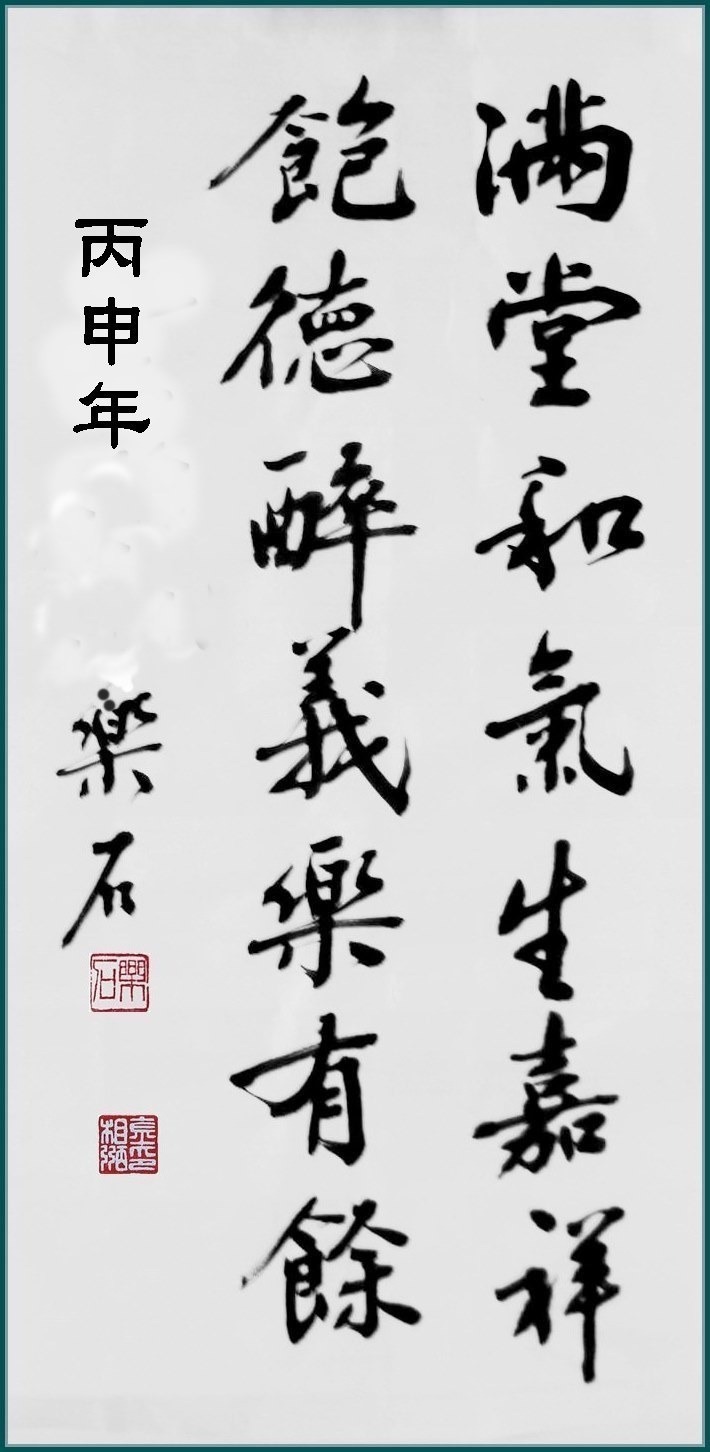 滿堂和氣生嘉祥
飽德醉義樂有餘
丙申年
樂石
樂石